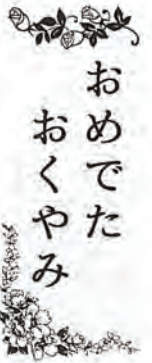 おめでた
おくやみ